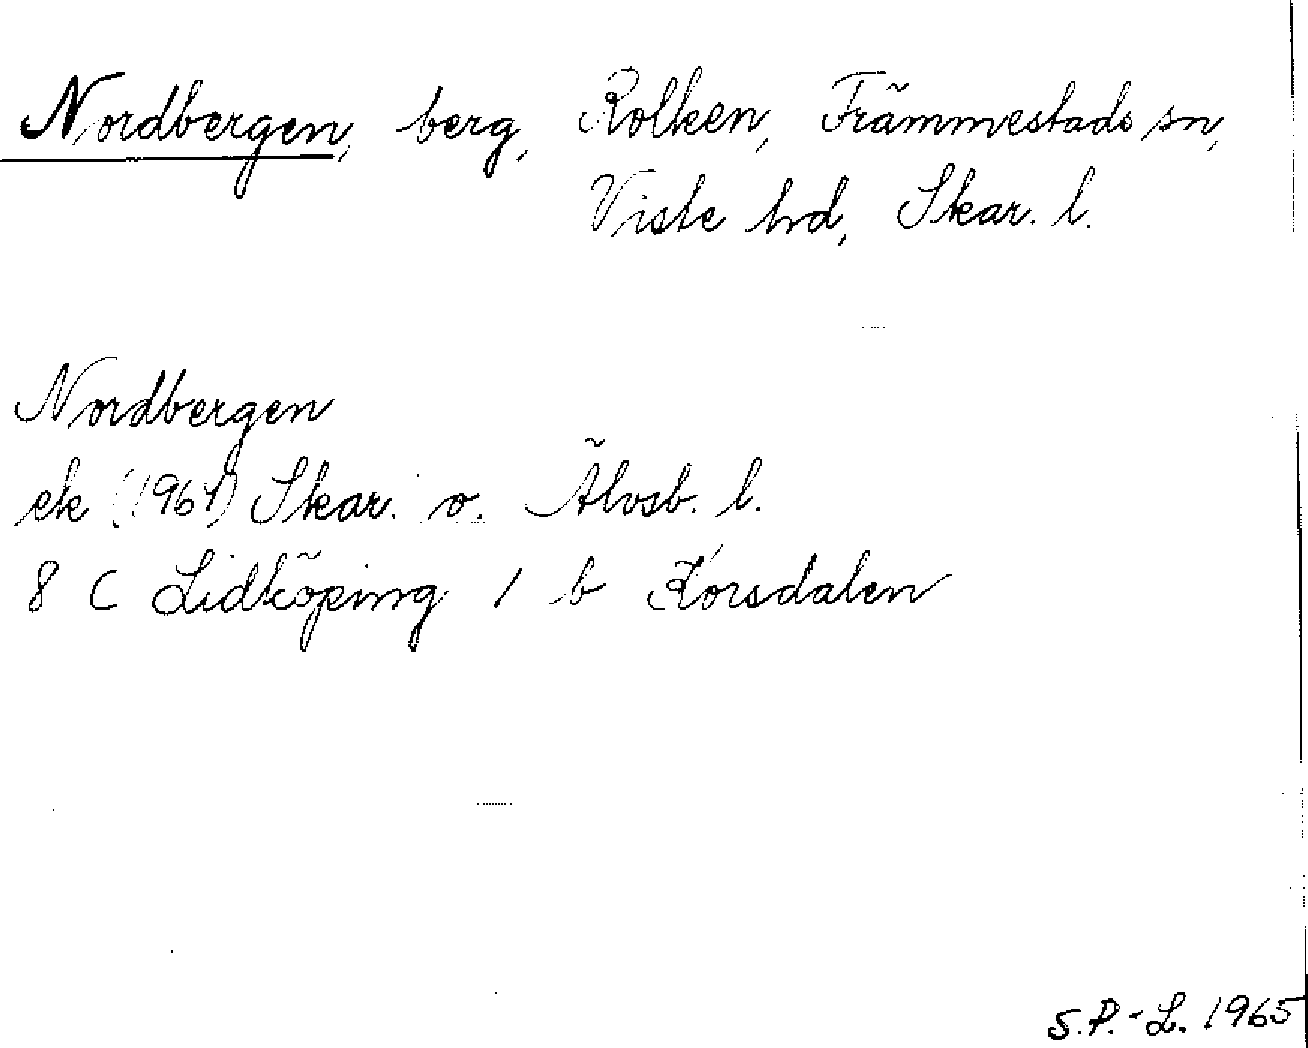 Nordbergen, berg, Rolken, Främmestads sn,
Viste hd, Skar. l.
Nordbergen
ek (1964) Skar. o. Älvsb. l.
8 C Lidköping 1 b Korsdalen
S.P.-L. 1965